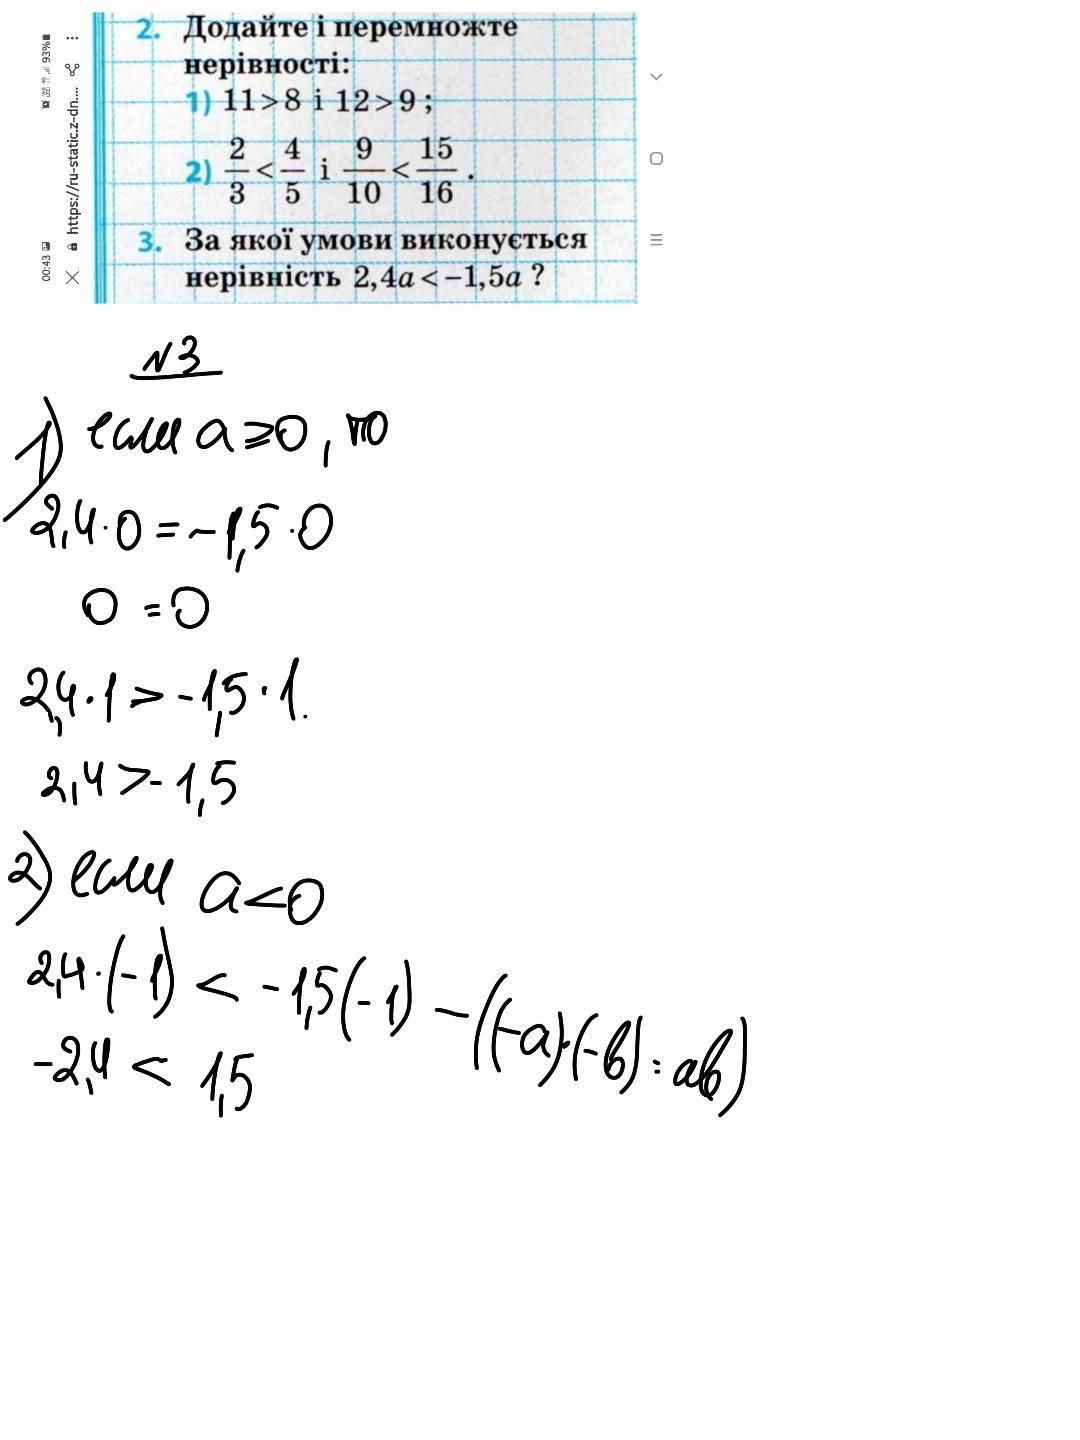 2. Додайте і перемножте
нерівності:
1) 11>8 і 12>9 ;
2) 2/3 < 4/5 і 9/10 < 15/16 .
3. За якої умови виконується
нерівність 2,4a < −1,5a ?
00:43 93%
https://ru-static.z-dn....
N3
1) если a ≥ 0, то
2,4·0 = -1,5·0
0 = 0
2,4·1 > -1,5·1.
2,4 > -1,5
2) если a < 0
2,4·(-1) < -1,5(-1) - ((-a)·(-b) = ab)
-2,4 < 1,5